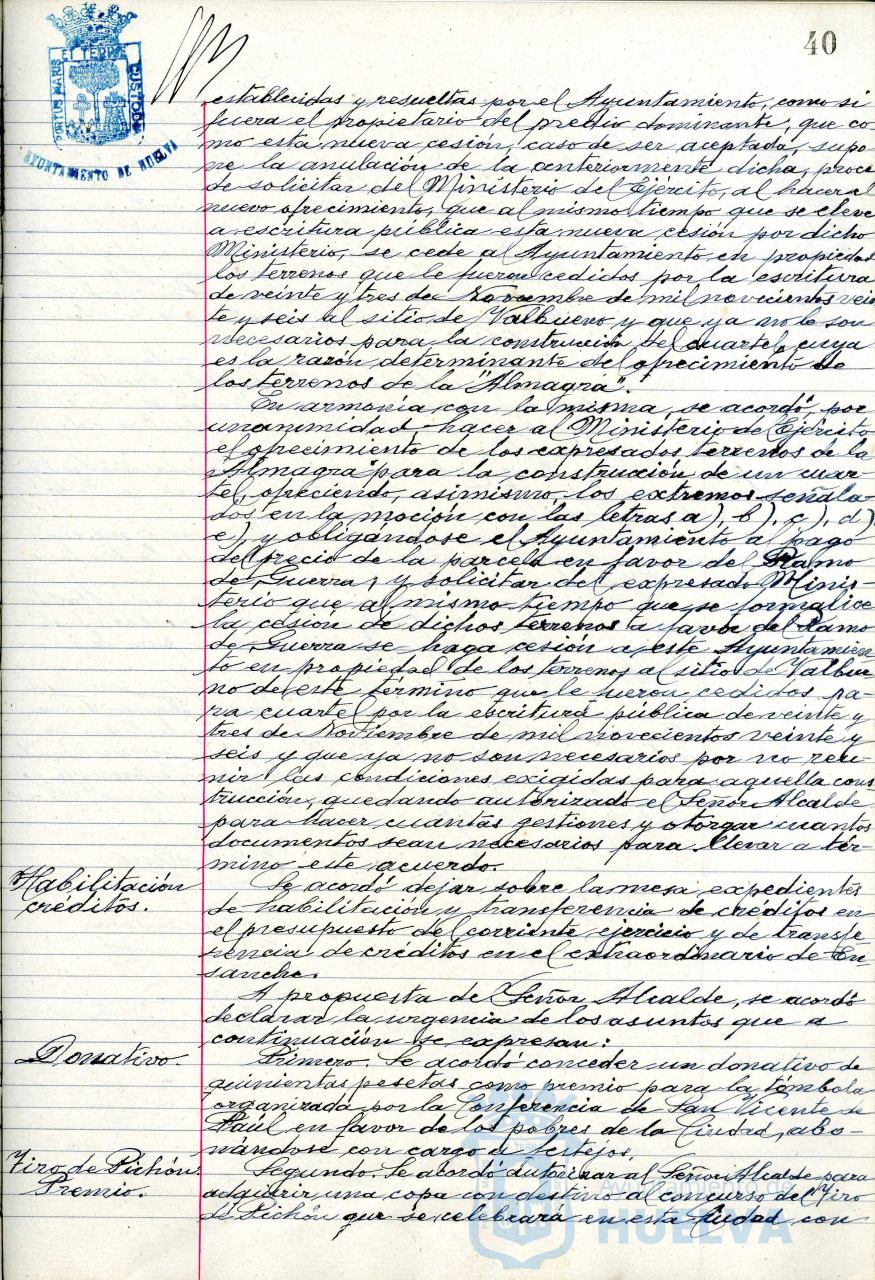 40
PORTUS MARIS ET TERRÆ CUSTODIA
AYUNTAMIENTO DE HUELVA
establecidas y resueltas por el Ayuntamiento, como si
fuera el propietario del predio dominante, que co
mo esta nueva cesión, caso de ser aceptada, supo
ne la anulación de la anteriormente dicha, proce
de solicitar del Ministerio del Ejército, al hacer el
nuevo ofrecimiento, que al mismo tiempo que se eleve
a escritura pública esta nueva cesión por dicho
Ministerio, se cede a Ayuntamiento en propiedad
los terrenos que le fueron cedidos por la escritura
de veinte y tres de Noviembre de mil novecientos vein
te y seis al sitio de Valbueno y que ya no le son
necesarios para la construcción del cuartel, cuya
es la razón determinante del ofrecimiento de
los terrenos de la "Almagra".
En armonía con la misma, se acordó, por
unanimidad, hacer al Ministerio de Ejército
el ofrecimiento de los expresados terrenos de la
"Almagra" para la construcción de un cuar-
tel, ofreciendo, asimismo, los extremos señala-
dos en la moción con las letras a), b), c), d)
e), y obligándose el Ayuntamiento al pago
del precio de la parcela en favor del Ramo
de Guerra, y solicitar del expresado Minis-
terio que al mismo tiempo que se formalice
la cesión de dichos terrenos a favor del Ramo
de Guerra se haga cesión a este Ayuntamien
to en propiedad de los terrenos al sitio de Valbue
no de este término que le fueron cedidos pa-
ra cuartel por la escritura pública de veinte y
tres de Noviembre de mil novecientos veinte y
seis y que ya no son necesarios por no reu-
nir las condiciones exigidas para aquella cons
trucción, quedando autorizado el Señor Alcalde
para hacer cuantas gestiones y otorgar cuantos
documentos sean necesarios para llevar a tér-
mino este acuerdo.
Habilitación
créditos.
Se acordó dejar sobre la mesa expedientes
de habilitación y transferencia de créditos en
el presupuesto del corriente ejercicio y de transfe
rencia de créditos en el extraordinario de En-
sanche.
A propuesta de Señor Alcalde, se acordó
declarar la urgencia de los asuntos que a
continuación se expresan:
Donativo.
Primero. Se acordó conceder un donativo de
quinientas pesetas como premio para la tómbola
organizada por la Conferencia de San Vicente de
Paúl en favor de los pobres de la Ciudad, abo-
nándose con cargo a festejos.
Tiro de Pichón.
Premio.
Segundo. Se acordó autorizar al Señor Alcalde para
adquirir una copa con destino al concurso del Tiro
de Pichón que se celebrará en esta Ciudad con
Ayuntamiento de
HUELVA